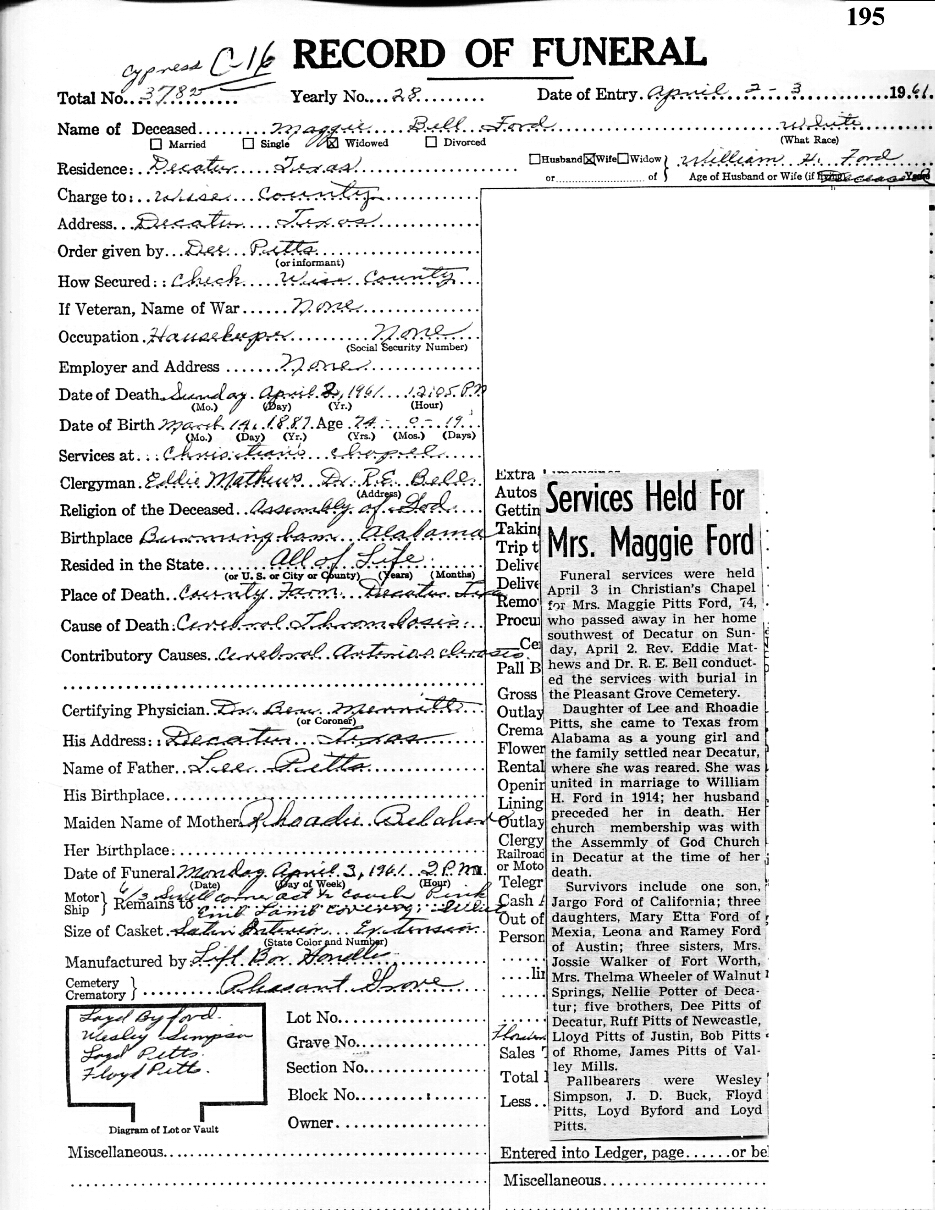 195
Cypress C-16
RECORD OF FUNERAL
Total No. 3782 Yearly No. 28 Date of Entry April 2 - 3 1961
Name of Deceased Maggie Bell Ford White
Married Single Widowed Divorced (What Race)
Residence: Decatur Texas Husband Wife Widow William H. Ford
or of Age of Husband or Wife (if Deceased Years
Charge to: Wise County
Address Decatur Texas
Order given by Dee Pitts
(or informant)
How Secured: Check Wise County
If Veteran, Name of War None
Occupation Housekeeper None
(Social Security Number)
Employer and Address None
Date of Death Sunday April 2, 1961 12:05 P.M
(Mo.) (Day) (Yr.) (Hour)
Date of Birth March 14, 1887 Age 74 - 0 - 19
(Mo.) (Day) (Yr.) (Yrs.) (Mos.) (Days)
Services at Christian's Chapel
Clergyman Eddie Mathews Dr. R.E. Bell
(Address)
Religion of the Deceased Assembly of God
Birthplace Burmingham Alabama
Resided in the State All of Life
(or U. S. or City or County) (Years) (Months)
Place of Death County Farm Decatur Tex
Cause of Death: Cerebral Thrombosis
Contributory Causes Cerebral Arterioscleroses
Certifying Physician Dr. Ben Merritt
(or Coroner)
His Address: Decatur Texas
Name of Father Lee Pitts
His Birthplace
Maiden Name of Mother Rhoadie
Her Birthplace:
Date of Funeral Monday April 3, 1961 2 P.M.
(Date) (Day of Week) (Hour)
Motor Ship Remains to 6/3
Size of Casket Satin Interior Extension
(State Color and Number)
Manufactured by Lift Bar Handles
Cemetery Crematory Pleasant Grove
Loyd Byford
Wesley Simpson
Loyd Pitts
Floyd Pitts.
Diagram of Lot or Vault
Lot No.
Grave No.
Section No.
Block No.
Owner
Miscellaneous
Extra
Autos
Gettin
Takin
Trip t
Delive
Delive
Remo
Procu
Ce
Pall B
Gross
Outlay
Crema
Flower
Rental
Openir
Lining
Outlay
Clergy
Railroad
or Moto
Telegr
Cash A
Out of
Person
Sales T
Total
Less
Entered into Ledger, page or be
Miscellaneous
Services Held For
Mrs. Maggie Ford
Funeral services were held
April 3 in Christian's Chapel
for Mrs. Maggie Pitts Ford, 74,
who passed away in her home
southwest of Decatur on Sun-
day, April 2. Rev. Eddie Mat-
hews and Dr. R. E. Bell conduct-
ed the services with burial in
the Pleasant Grove Cemetery.
Daughter of Lee and Rhoadie
Pitts, she came to Texas from
Alabama as a young girl and
the family settled near Decatur,
where she was reared. She was
united in marriage to William
H. Ford in 1914; her husband
preceded her in death. Her
church membership was with
the Assemmly of God Church
in Decatur at the time of her
death.
Survivors include one son,
Jargo Ford of California; three
daughters, Mary Etta Ford of
Mexia, Leona and Ramey Ford
of Austin; three sisters, Mrs.
Jossie Walker of Fort Worth,
Mrs. Thelma Wheeler of Walnut
Springs, Nellie Potter of Deca-
tur; five brothers, Dee Pitts of
Decatur, Ruff Pitts of Newcastle,
Lloyd Pitts of Justin, Bob Pitts
of Rhome, James Pitts of Val-
ley Mills.
Pallbearers were Wesley
Simpson, J. D. Buck, Floyd
Pitts, Loyd Byford and Loyd
Pitts.